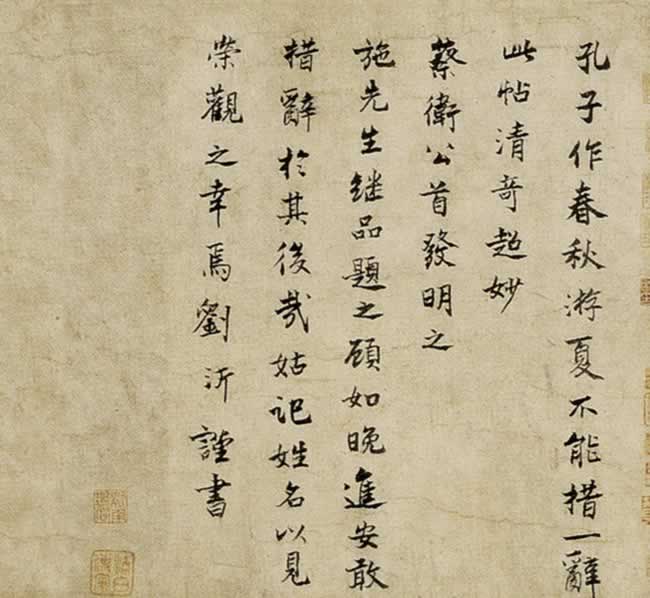 孔子作春秋游夏不能措一辭
此帖清奇超妙
蔡衛公首發明之
施先生继品題之顾如晚進安敢
措辭於其後哉姑记姓名以見
榮觀之幸焉劉沂謹書